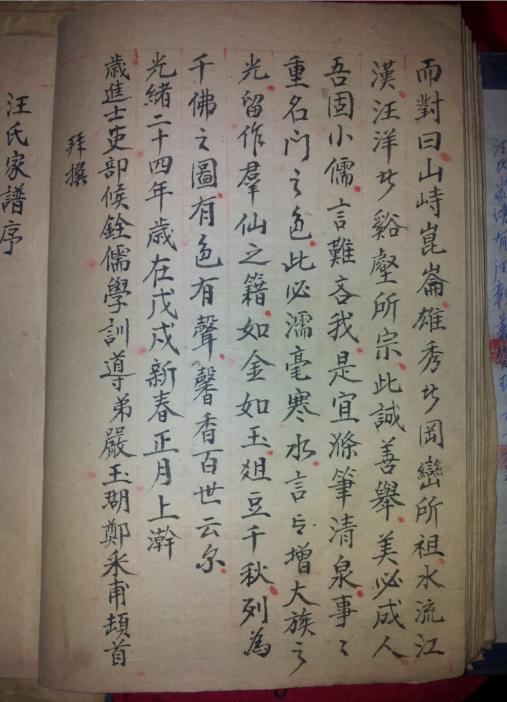 而對曰山峙崑崙雄秀岡巒所祖水流江
漢汪洋谿壑所宗此誠善舉美必成人
吾固小儒言難吝我是宜滌筆清泉事〻
重名門之色此必濡毫寒水言〻增大族之
光留作羣仙之籍如金如玉俎豆千秋列為
千佛之圖有色有聲馨香百世云尔
光緒二十四年歲在戊戌新春正月上澣
歲進士吏部候銓儒學訓導弟嚴玉瑚鄭采甫頓首
拜撰
汪氏家譜序